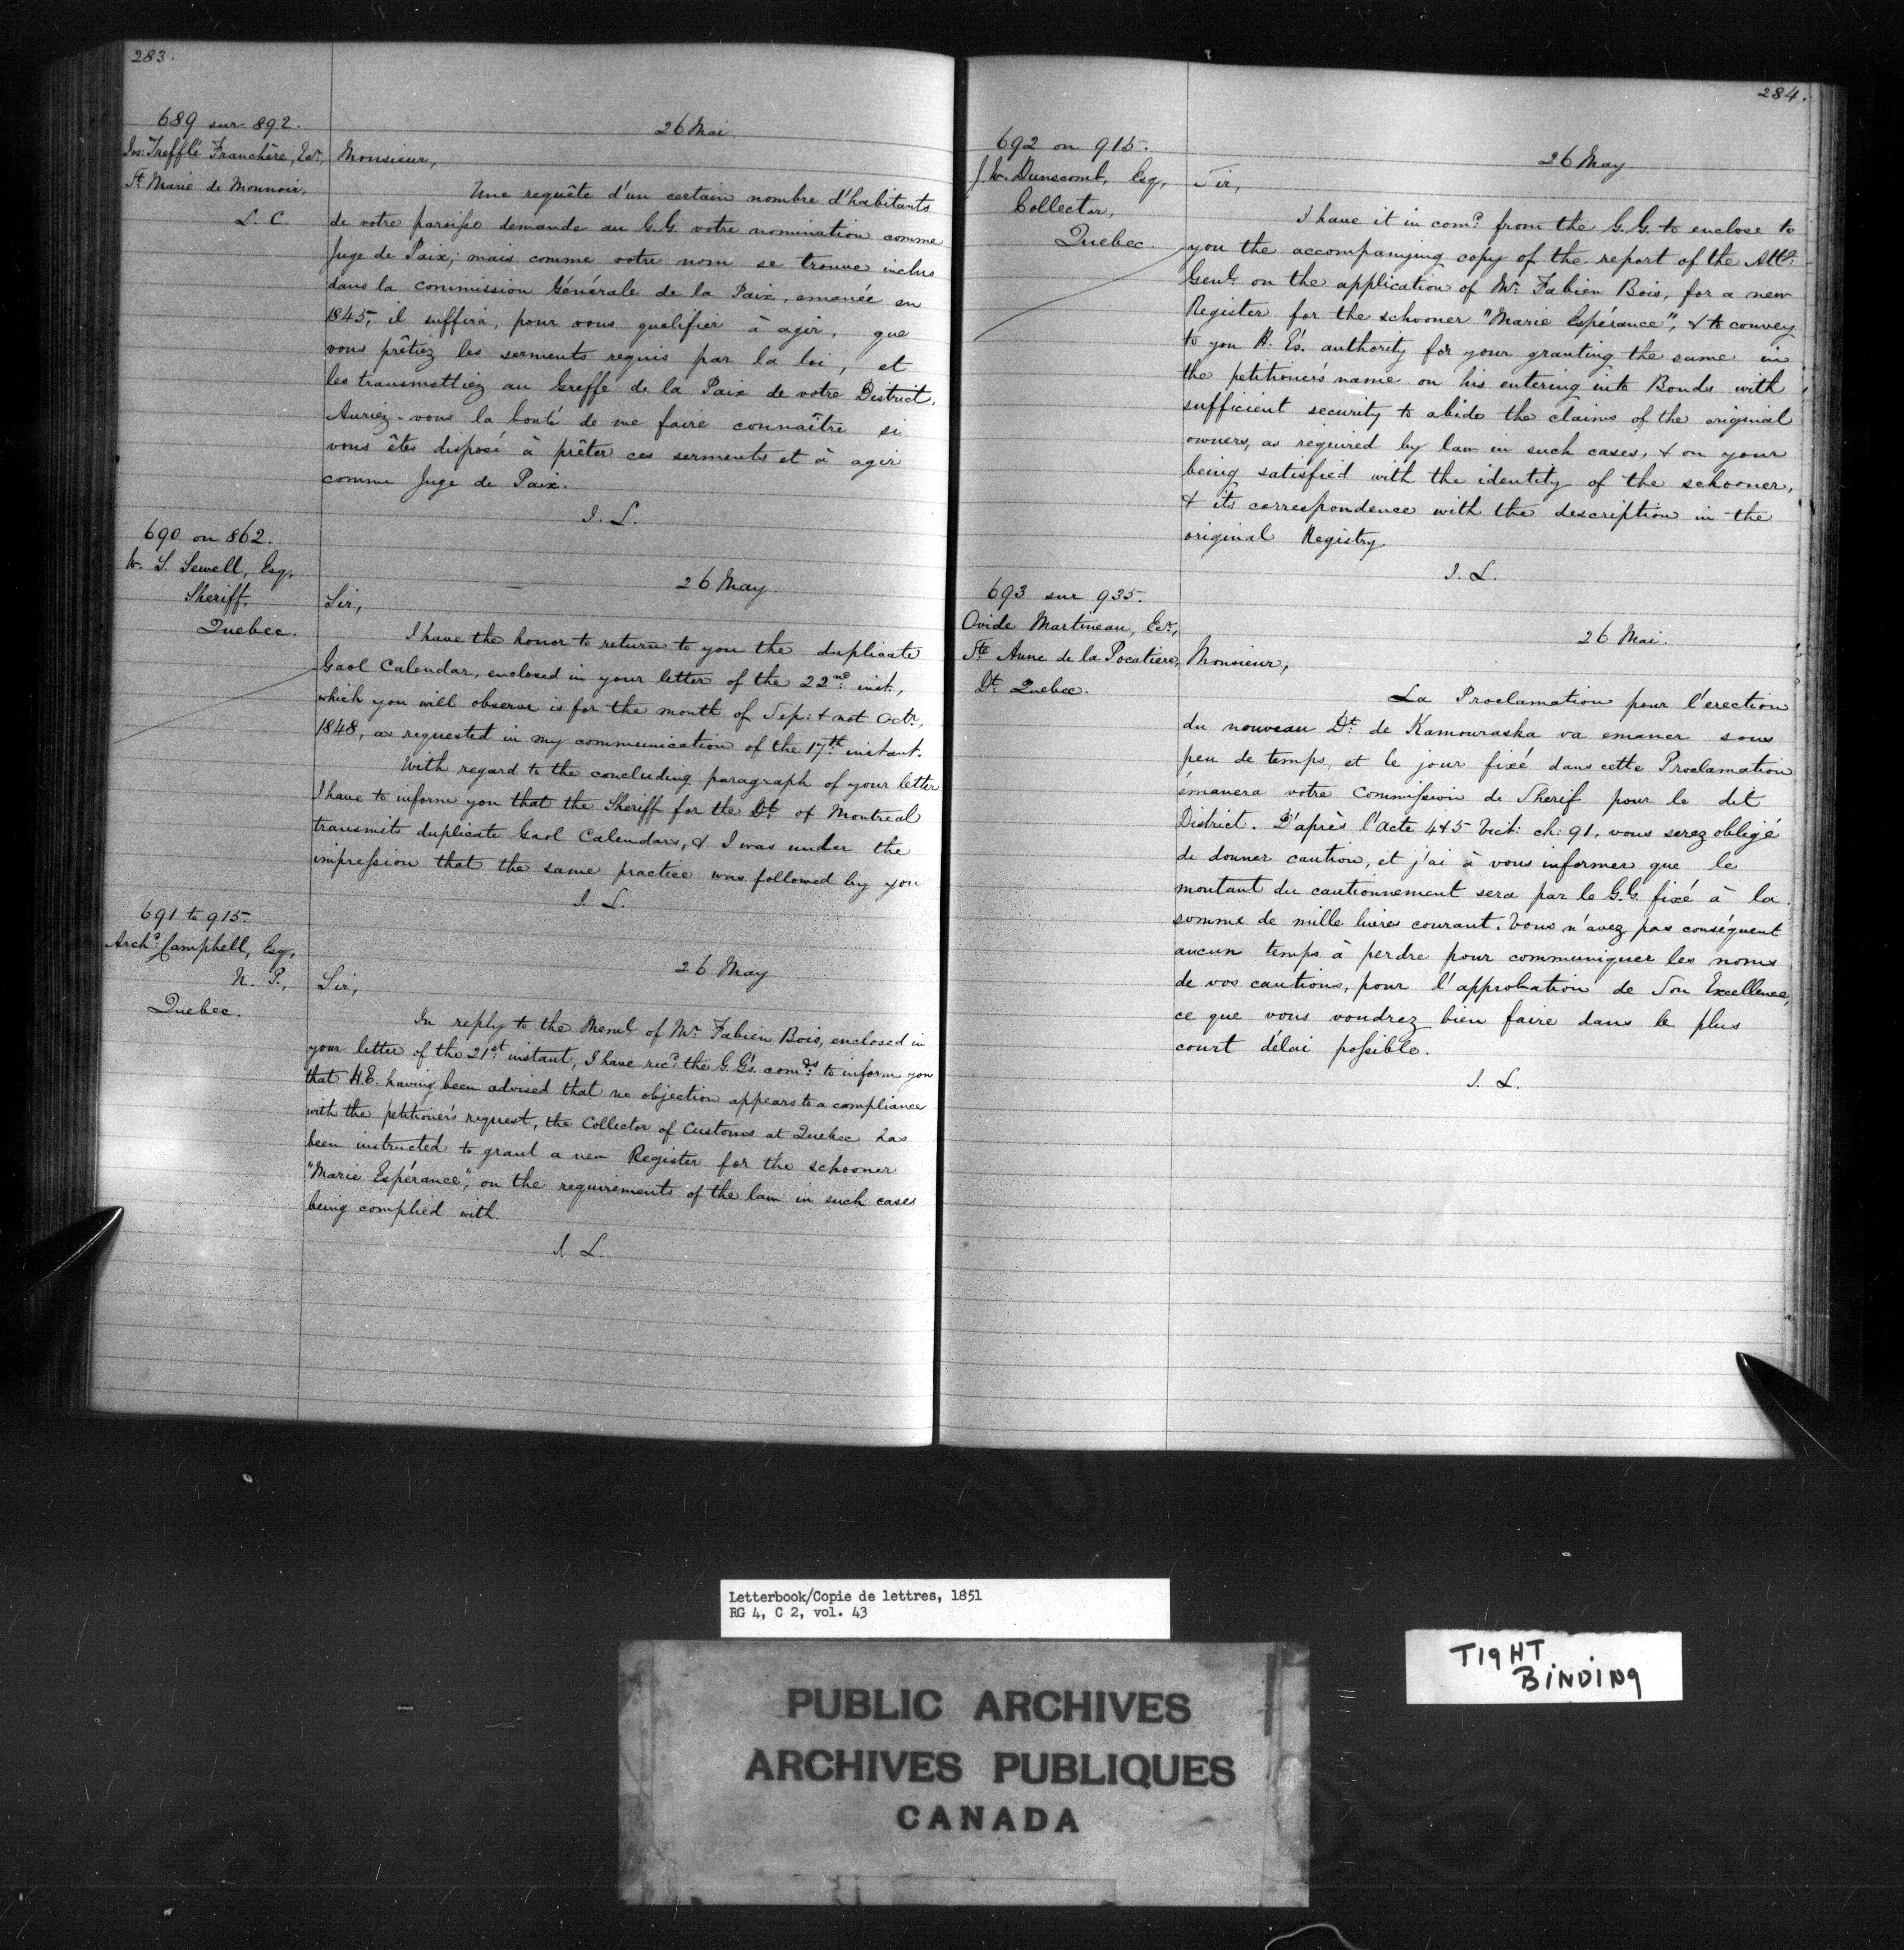 283.
689 sur 892.
Jos: Trefflé Franchère, Ecr,
Ste Marie de Monnoir,
L. C.
26 Mai
Monsieur,
Une requête d'un certain nombre d'habitants
de votre paroisse demande au G.G. votre nomination comme
Juge de Paix; mais comme votre nom se trouve inclus
dans la commission Générale de la Paix, emanée en
1845, il suffira, pour vous qualifier à agir, que
vous prêtiez les serments requis par la loi, et
les transmettiez au Greffe de la Paix de votre District.
Auriez-vous la bonté de me faire connaître si
vous êtes disposé à prêter ces serments et à agir
comme Juge de Paix.
J. L.
690 on 862.
W. S. Sewell, Esq,
Sheriff,
Quebec.
26 May.
Sir,
I have the honor to return to you the duplicate
Gaol Calendar, enclosed in your letter of the 22nd inst.,
which you will observe is for the month of Sep: & not Octr,
1848, as requested in my communication of the 17th instant.
With regard to the concluding paragraph of your letter
I have to inform you that the Sheriff for the Dt of Montreal
transmits duplicate Gaol Calendars, & I was under the
impression that the same practice was followed by you
J. L.
691 to 915.
Archd Campbell, Esq,
N. P.,
Quebec.
26 May
Sir,
In reply to the Meml of Mr Fabien Bois, enclosed in
your letter of the 21st instant, I have recd the G.G's. comds to inform you
that H.E. having been advised that no objection appears to a compliance
with the petitioner's request, the Collector of Customs at Quebec has
been instructed to grant a new Register for the schooner
"Marie Espérance", on the requirements of the law in such cases
being complied with.
J. L.
284.
692 on 915.
J. W. Dunscomb, Esq,
Collector,
Quebec.
26 May.
Sir,
I have it in comd from the G. G. to enclose to
you the accompanying copy of the report of the Atty
Genl on the application of Mr Fabien Bois, for a new
Register for the schooner "Marie Espérance", & to convey
to you H. E's. authority for your granting the same in
the petitioner's name on his entering into Bonds with
sufficient security to abide the claims of the original
owners, as required by law in such cases, & on your
being satisfied with the identity of the schooner,
& its correspondence with the description in the
original Registry.
J. L.
693 sur 935.
Ovide Martineau, Ecr,
Ste Anne de la Pocatiere,
Dt Quebec.
26 Mai.
Monsieur,
La Proclamation pour l'erection
du nouveau Dt de Kamouraska va emaner sous
peu de temps, et le jour fixé dans cette Proclamation
émanera votre Commission de Sherif pour le dit
District. D'après l'Acte 4 & 5 Vict: ch: 91, vous serez obligé
de donner caution, et j'ai à vous informer que le
montant du cautionnement sera par le G.G. fixé à la
somme de mille livres courant. Vous n'avez pas conséquent
aucun temps à perdre pour communiquer les noms
de vos cautions, pour l'approbation de Son Excellence,
ce que vous voudrez bien faire dans le plus
court délai possible.
J. L.
Letterbook/Copie de lettres, 1851
RG 4, C 2, vol. 43
TIGHT
BINDING
PUBLIC ARCHIVES
ARCHIVES PUBLIQUES
CANADA